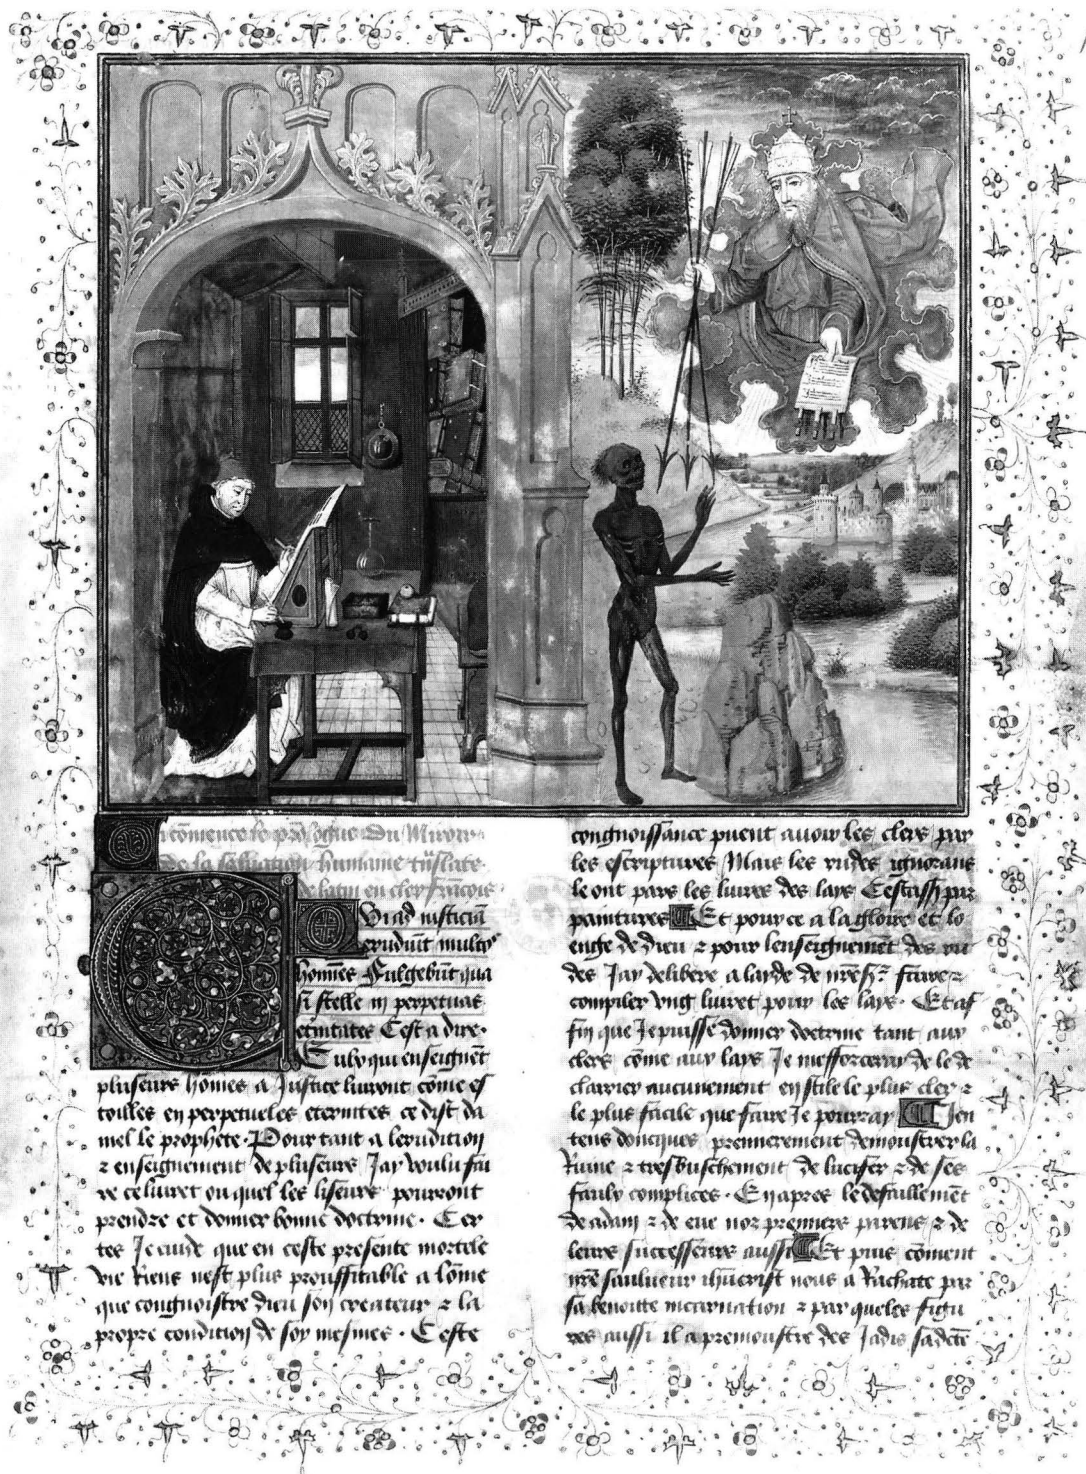 Cy cõmence le prologue du Miroir
de la saluation humaine trãslate
de latin en cler francois
Qui ad iusticiã
erudiũt multos
homĩes fulgebũt qua
si stelle in perpetuas
eternitates Cest a dire.
Ceulx qui enseignẽt
pluseurs hõmes a Justice luiront cõme es
toilles en perpetueles eternites ce dist da
niel le prophete. Pour tant a lerudition
⁊ enseignement de pluseurs Jay voulu fai
re ce liuret ou quel les liseurs pourront
prendre et donner bonne doctrine. Cer
tes Je cuide que en ceste presente mortele
vie Riens nest plus prouffitable a lõme
que congnoistre dieu son createur ⁊ la
propre condition de soy mesmes. Ceste
congnoissance puent auoir les clers par
les escriptures Mais les rudes ignorans
le ont par les liures des lays Cestassr̃ par
paintures Et pour ce a la gloire et lo
enge de dieu ⁊ pour lenseignemẽt des ru
des Jay delibere a layde de nr̃e sr̃ faire ⁊
compiler vng liuret pour les lays. Et af
fin que Je puisse donner doctrine tant aux
clers cõme aux lays Je mefforceray de le de
clairier aucunement en stile le plus cler ⁊
le plus facile que faire Je pourray Jen
tens doncques premierement demonstrer la
Ruine ⁊ tresbuschement de lucifer ⁊ de ses
faulx complices. En apres le defaillemẽt
de adam ⁊ de eue noz premiers parens ⁊ de
leurs successeurs aussi Et puis cõment
nr̃e saulueur ihũcrist nous a Rachate par
sa benoitte incarnation ⁊ par queles figu
res aussi il a premonstre des Jadis sa